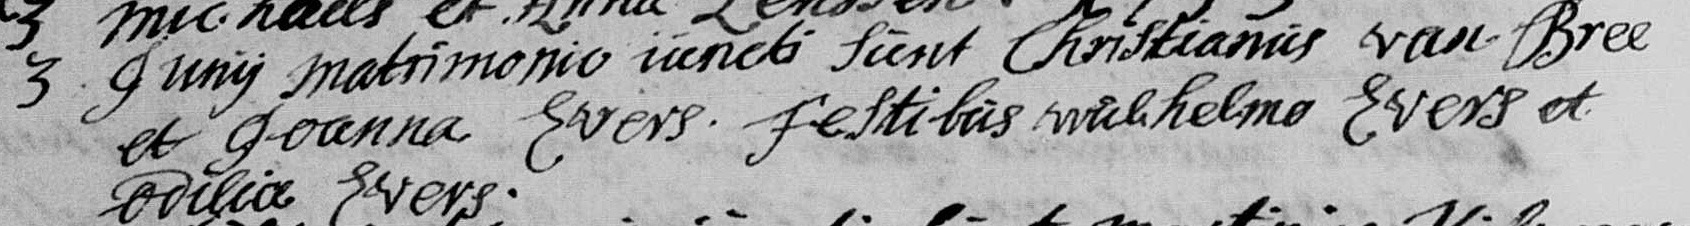 3 michaels et Anna Lenssen.
3 Junij matrimonio iuncti sunt Christianus van Bree
et Joanna Evers. Testibus wilhelmo Evers et
odilia Evers.